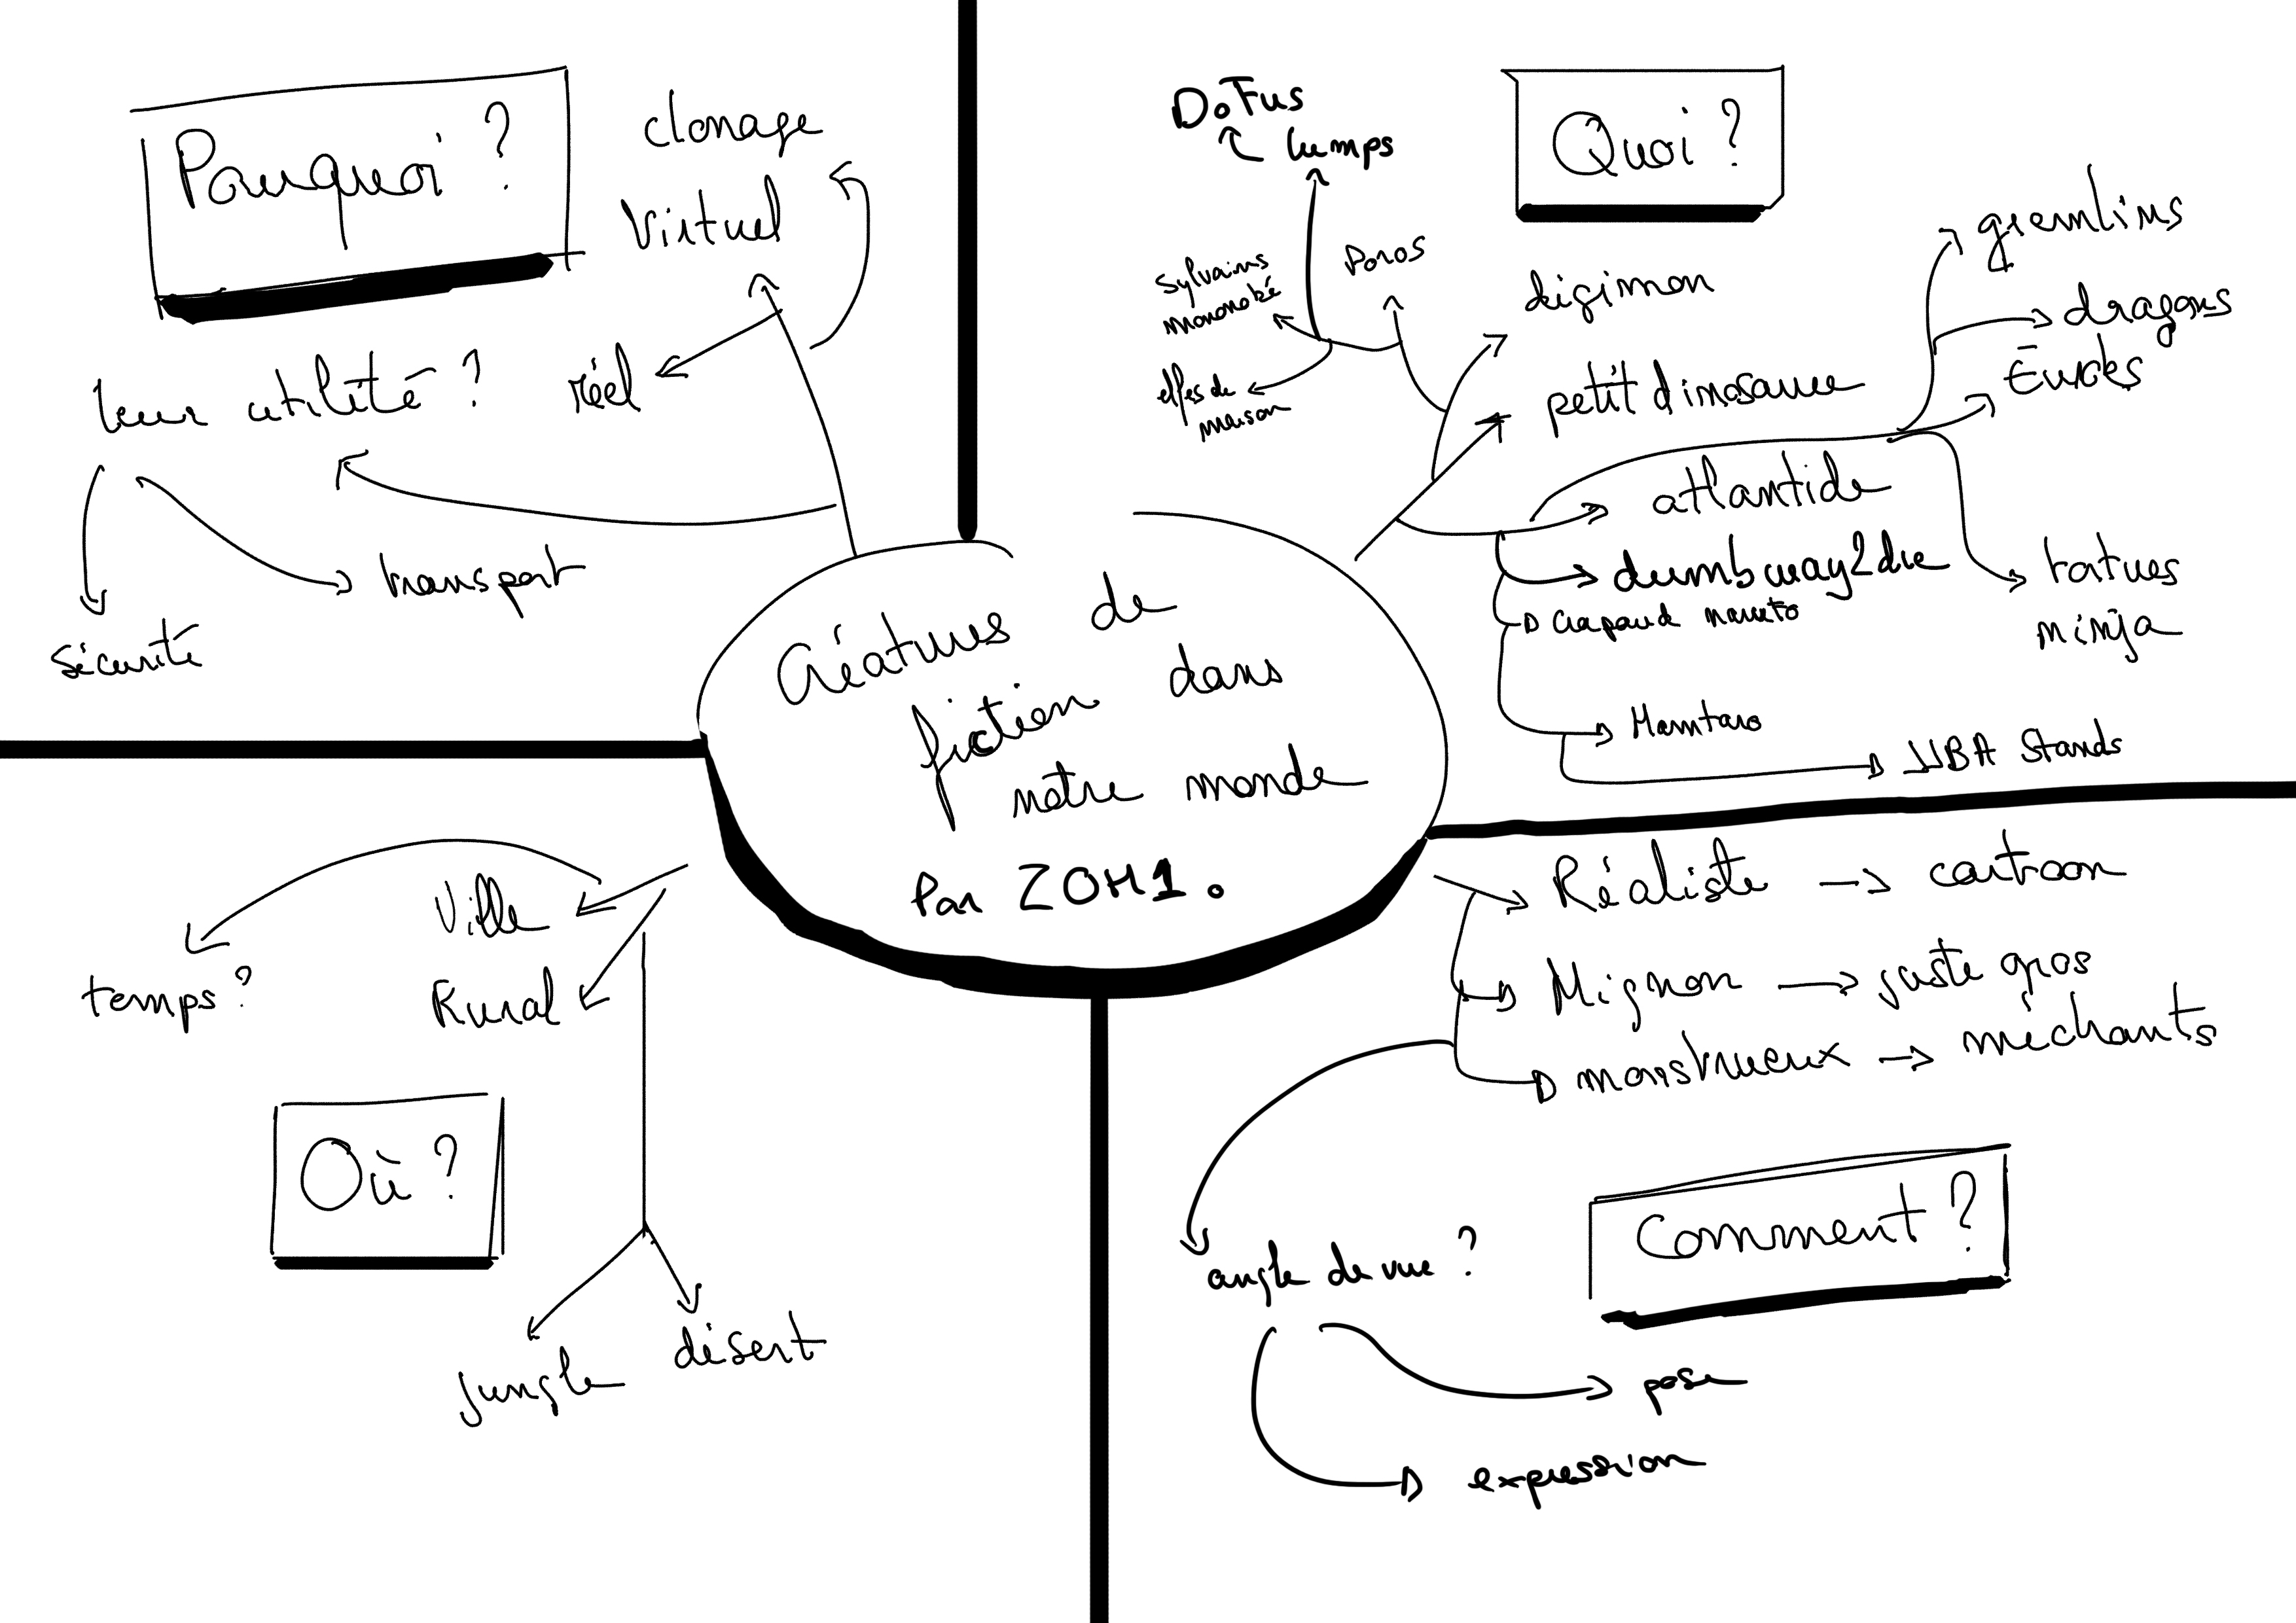 Pourquoi ?
clonage
Virtuel
réel
leur utilité ?
transport
sécurité
DoFus
lumps
Quoi ?
Poros
sylvains
mononoké
elfes de
maison
digimon
petit dinosaure
gremlins
dragons
atlantide
dumbway2die
Crapaud naruto
tortues
ninja
Hamtaro
Stands
Créatures de
fiction dans
notre monde
Par ZOH1.
Ville
Rural
temps ?
Où ?
jungle
désert
Réaliste → cartoon
Mignon → juste gros
monstrueux → méchants
Comment ?
angle de vue ?
pose
expression